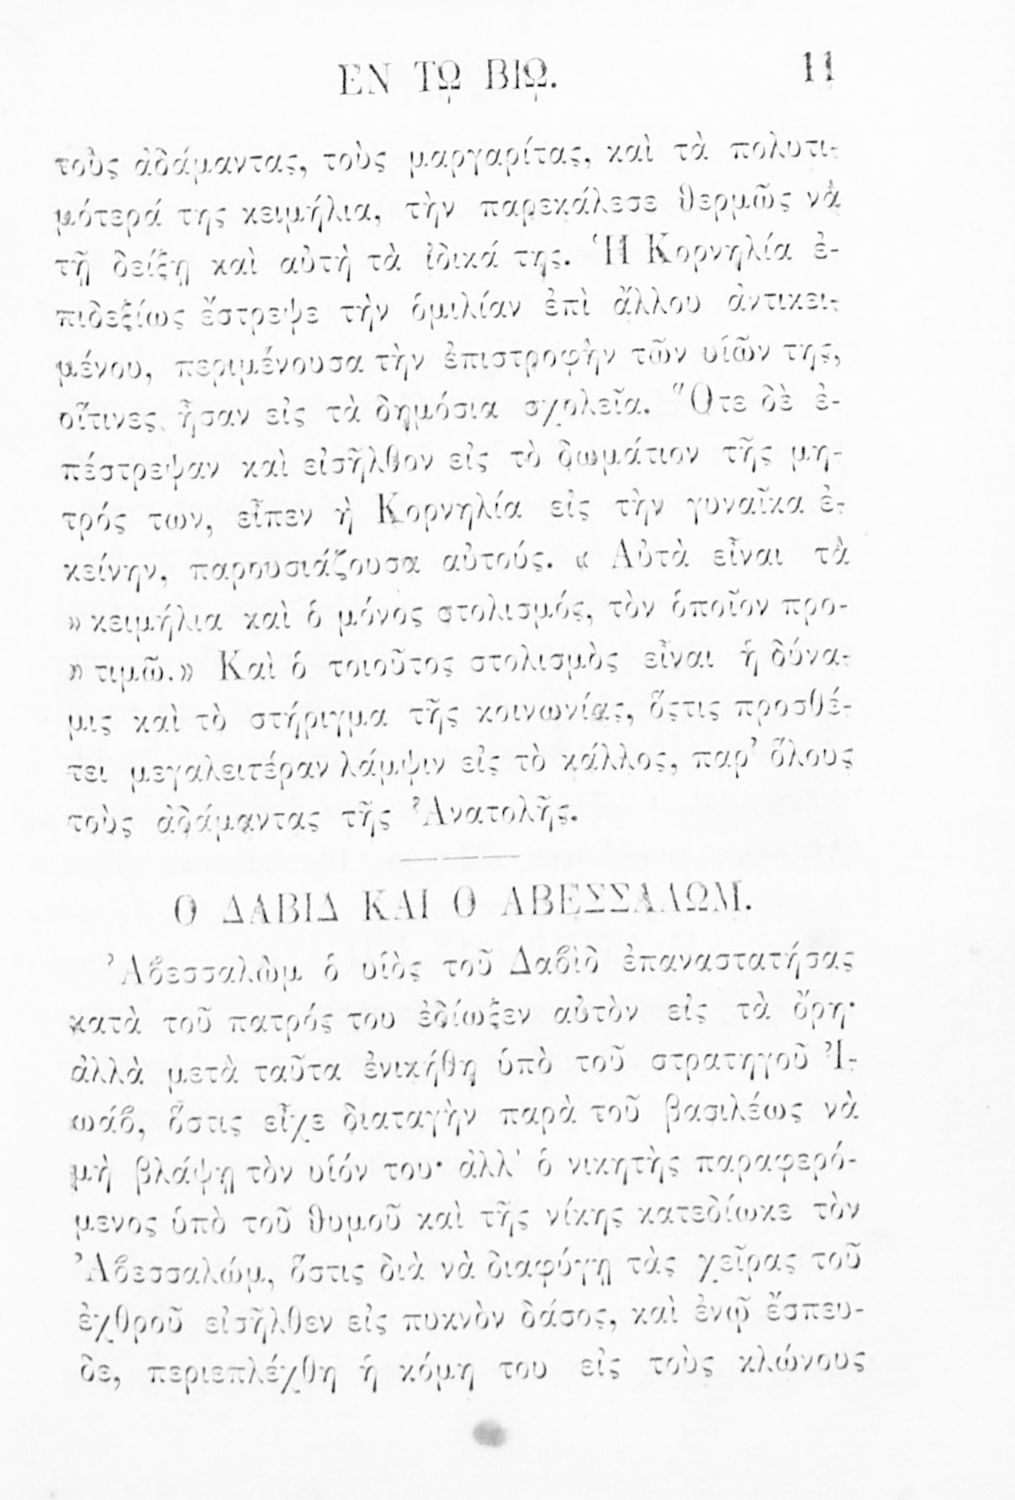 ΕΝ Τῼ ΒΙῼ. 11
τοὺς ἀδάμαντας, τοὺς μαργαρίτας, καὶ τὰ πολυτι-
μότερά της κειμήλια, τὴν παρεκάλεσε θερμῶς νὰ
τῇ δείξῃ καὶ αὐτὴ τὰ ἰδικά της. Ἡ Κορνηλία ἐ-
πιδεξίως ἔστρεψε τὴν ὁμιλίαν ἐπὶ ἄλλου ἀντικει-
μένου, περιμένουσα τὴν ἐπιστροφὴν τῶν υἱῶν της,
οἵτινες ἦσαν εἰς τὰ δημόσια σχολεῖα. Ὅτε δὲ ἐ-
πέστρεψαν καὶ εἰσῆλθον εἰς τὸ δωμάτιον τῆς μη-
τρός των, εἶπεν ἡ Κορνηλία εἰς τὴν γυναῖκα ἐ-
κείνην, παρουσιάζουσα αὐτούς. « Αὐτὰ εἶναι τὰ
» κειμήλια καὶ ὁ μόνος στολισμός, τὸν ὁποῖον προ-
» τιμῶ.» Καὶ ὁ τοιοῦτος στολισμὸς εἶναι ἡ δύνα-
μις καὶ τὸ στήριγμα τῆς κοινωνίας, ὅςτις προσθέ-
τει μεγαλειτέραν λάμψιν εἰς τὸ κάλλος, παρ’ ὅλους
τοὺς ἀδάμαντας τῆς Ἀνατολῆς.
Ο ΔΑΒΙΔ ΚΑΙ Ο ΑΒΕΣΣΑΛΩΜ.
Ἀβεσσαλὼμ ὁ υἱὸς τοῦ Δαβὶδ ἐπαναστατήσας
κατὰ τοῦ πατρός του ἐδίωξεν αὐτὸν εἰς τὰ ὄρη·
ἀλλὰ μετὰ ταῦτα ἐνικήθη ὑπὸ τοῦ στρατηγοῦ Ἰ-
ωάβ, ὅστις εἶχε διαταγὴν παρὰ τοῦ βασιλέως νὰ
μὴ βλάψῃ τὸν υἱόν του· ἀλλ’ ὁ νικητὴς παραφερό-
μενος ὑπὸ τοῦ θυμοῦ καὶ τῆς νίκης κατεδίωκε τὸν
Ἀβεσσαλώμ, ὅστις διὰ νὰ διαφύγῃ τὰς χεῖρας τοῦ
ἐχθροῦ εἰσῆλθεν εἰς πυκνὸν δάσος, καὶ ἐνῷ ἔσπευ-
δε, περιεπλέχθη ἡ κόμη του εἰς τοὺς κλώνους